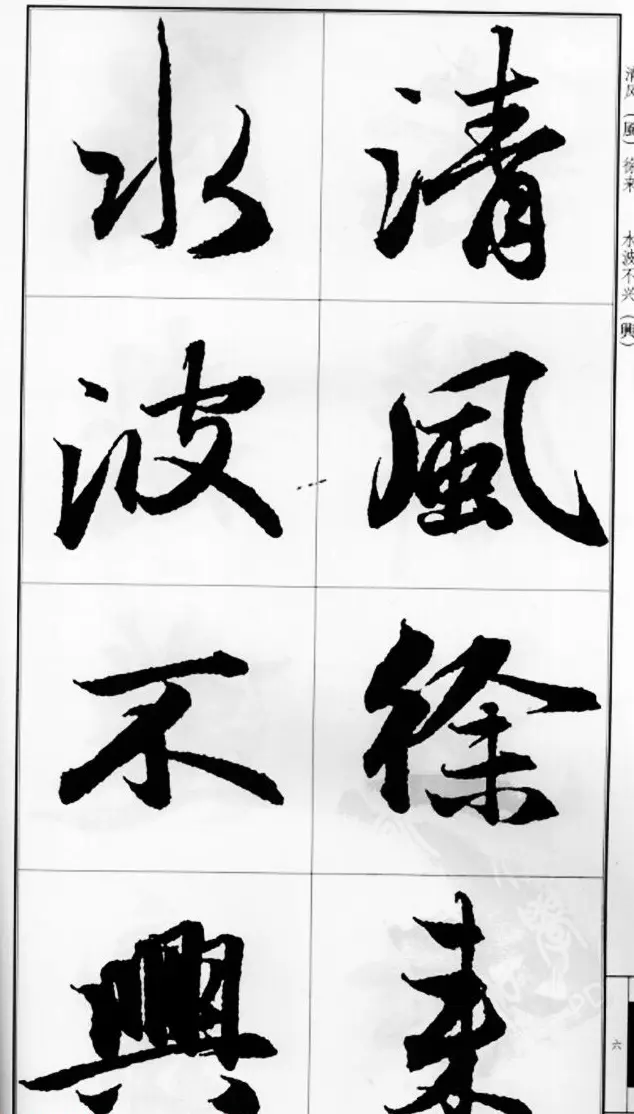 清風徐来
水波不興
清风（風）徐来 水波不兴（興）
六